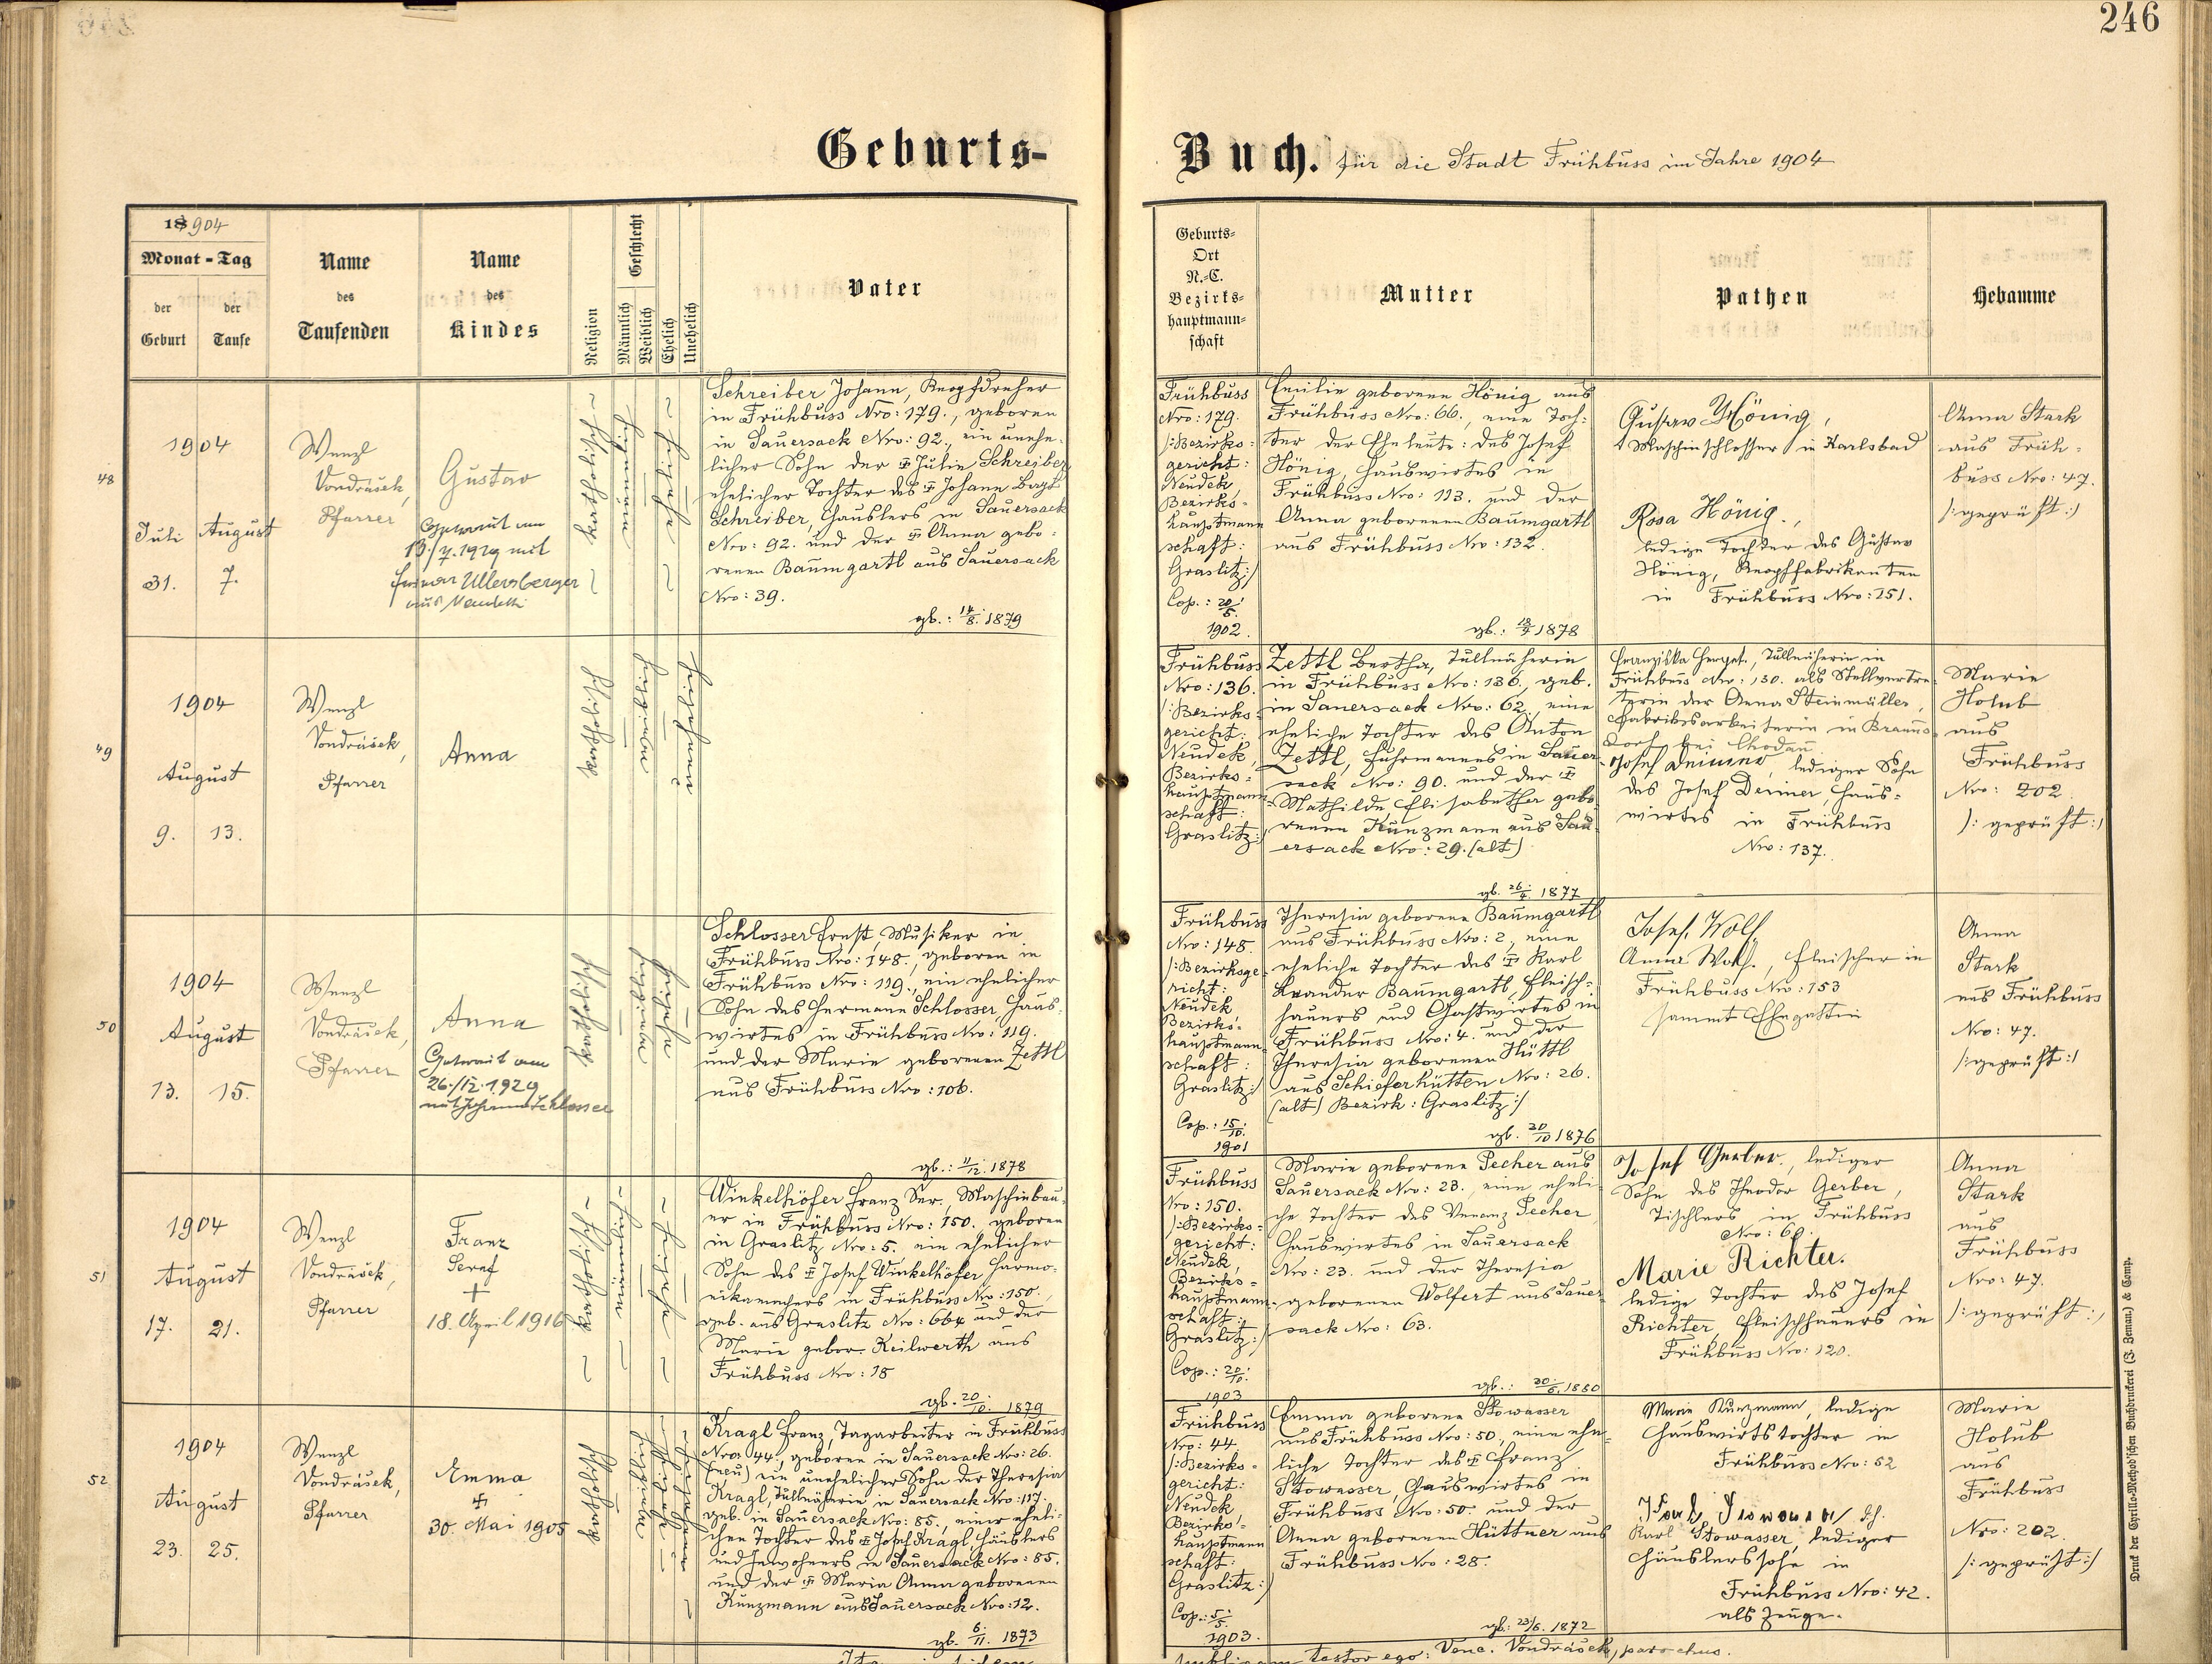 246
Geburts-
Buch. für die Stadt Frühbuss im Jahre 1904
18904
Monat - Tag
der Geburt
der Taufe
Name des Taufenden
Name des Kindes
Religion
Geschlecht
Männlich
Weiblich
Ehelich
Unehelich
Vater
Geburts-
Ort
N.-C.
Bezirks-
hauptmann-
schaft
Mutter
Pathen
Hebamme
48
1904
Juli August
31. 7.
Wenzl
Vondrášek,
Pfarrer
Gustav
Getraut am
13./7.1929 mit
Ullersberger
aus
katholisch
Schreiber Johann, Knopfdreher
in Frühbuss Nro: 179., geboren
in Sauersack Nro: 92., ein unehe-
licher Sohn der † Julie Schreiber
ehelicher Tochter des † Johann
Schreiber, Häuslers in Sauersack
Nro: 92. und der † Anna gebo-
renen Baumgartl aus Sauersack
Nro: 39.
gb.: 14/8. 1879
Frühbuss
Nro: 179.
/:Bezirks-
gericht:
Neudek,
Bezirks-
hauptmann
schaft:
Graslitz:/
Cop.: 20/5.
1902.
Emilie geborene Hönig aus
Frühbuss Nro: 66., eine Toch-
ter der Eheleute: des Josef
Hönig, Hauswirtes in
Frühbuss Nro: 113. und der
Anna geborenen Baumgartl
aus Frühbuss Nro: 132.
gb.: 1878
Gustav Hönig,
Maschinschlosser in Karlsbad
Rosa Hönig.,
ledige Tochter des Gustav
Hönig, Knopffabrikanten
in Frühbuss Nro: 151.
Anna Stark
aus Früh-
buss Nro: 47.
/:geprüft:/
49
1904
August
9. 13.
Wenzl
Vondrášek,
Pfarrer
Anna
katholisch
Frühbuss
Nro: 136.
/:Bezirks-
gericht:
Neudek,
Bezirks-
hauptmann-
schaft:
Graslitz:/
Zettl Bertha, Tüllnäherin
in Frühbuss Nro: 136., geb.
in Sauersack Nro: 62., eine
eheliche Tochter des Anton
Zettl, Fuhrmannes in Sauer-
sack Nro: 90. und der †
Mathilde Elisabetha gebo-
renen Kunzmann aus Sau-
ersack Nro: 29. (alt)
gb. 26/4. 1877
Franziska Herget, Tüllnäherin in
Frühbuss Nro: 130. als Stellvertre-
terin der Anna Steinmüller,
Fabriksarbeiterin in Brauns-
dorf bei Chodau
Josef Deimer, lediger Sohn
des Josef Deimer, Haus-
wirtes in Frühbuss
Nro: 137.
Marie
Holub
aus
Frühbuss
Nro: 202.
/: geprüft:/
50
1904
August
13. 15.
Wenzl
Vondrášek,
Pfarrer
Anna
Getraut am
26./12.1929
mit Johann Schlosser
katholisch
Schlosser Ernst, Musiker in
Frühbuss Nro: 148., geboren in
Frühbuss Nro: 119., ein ehelicher
Sohn des Hermann Schlosser, Haus-
wirtes in Frühbuss Nro: 119.
und der Marie geborenen Zettl
aus Frühbuss Nro: 106.
gb.: 11/12. 1878
Frühbuss
Nro: 148.
/:Bezirksge-
richt:
Neudek
Bezirks-
hauptmann-
schaft:
Graslitz:/
Cop.: 15/10.
1901
Theresia geborene Baumgartl
aus Frühbuss Nro: 2., eine
eheliche Tochter des † Karl
Leander Baumgartl, Fleisch-
hauers und Gastwirtes in
Frühbuss Nro: 4. und der
Theresia geborenen Hüttl
aus Schieferhütten Nro: 26.
(alt) Bezirk: Graslitz:/
gb. 20/10 1876
Josef Wolf
Anna Wolf., Fleischer in
Frühbuss Nro: 153
sammt Ehegattin
Anna
Stark
aus Frühbuss
Nro: 47.
/:geprüft:/
51
1904
August
17. 21.
Wenzl
Vondrášek,
Pfarrer
Franz
Seraf
+
18. April 1916
katholisch
Winkelhöfer Franz Ser., Maschinbau-
er in Frühbuss Nro: 150. geboren
in Graslitz Nro: 5. ein ehelicher
Sohn des † Josef Winkelhöfer Harmo-
nikamachers in Frühbuss Nro: 150.,
geb. aus Graslitz Nro: 664 und der
Marie gebor. Keilwerth aus
Frühbuss Nro: 18
gb. 20/10. 1879
Frühbuss
Nro: 150.
/:Bezirks-
gericht:
Neudek,
Bezirks-
hauptmann-
schaft:
Graslitz:/
Cop.: 20/10.
1903
Marie geborene Pecher aus
Sauersack Nro: 23., eine eheli-
che Tochter des Venanz Pecher
Hauswirtes in Sauersack
Nro: 23. und der Theresia
geborenen Wolfert aus Sauer-
sack Nro: 63.
gb.: 1880
Josef Gerber., lediger
Sohn des Theodor Gerber,
Tischlers in Frühbuss
Marie Richter.
ledige Tochter des Josef
Richter, Fleischhauers in
Frühbuss Nro: 120.
Anna
Stark
aus
Frühbuss
Nro: 47.
/:geprüft:/
52
1904
August
23. 25.
Wenzl
Vondrášek,
Pfarrer
Emma
+
30. Mai 1905
katholisch
Kragl Franz, Tagarbeiter in Frühbuss
Nro: 44., geboren in Sauersack Nro: 26.
(neu) ein unehelicher Sohn der Theresia
Kragl, Tüllnäherin in Sauersack Nro: 117.
geb. in Sauersack Nro: 85., einer eheli-
chen Tochter des † Josef Kragl, Häuslers
und Inwohners in Sauersack Nro: 85.
und der † Maria Anna geborenen
Kunzmann aus Sauersack Nro: 12.
gb. 6/11. 1873
Frühbuss
Nro: 44.
/:Bezirks-
gericht:
Neudek
Bezirks-
hauptmann
schaft:
Graslitz:/
Cop.: 5/5.
1903.
Emma geborene Stowasser
aus Frühbuss Nro: 50., eine ehe-
liche Tochter des † Franz
Stowasser, Hauswirtes in
Frühbuss Nro: 50. und der
Anna geborenen Hüttner aus
Frühbuss Nro: 28.
gb.: 23/6. 1872
Marie Kunzmann, ledige
Hauswirtstochter in
Frühbuss Nro: 52
Karl Stowasser, lediger
Häuslerssohn in
Frühbuss Nro: 42.
als Zeuge.
Marie
Holub
aus
Frühbuss
Nro: 202.
/:geprüft:/
testor ego: Venc. Vondrášek, parochus.
Druck der Cyrillo-Method'schen Buchdruckerei (J. Zeman.) & Comp.